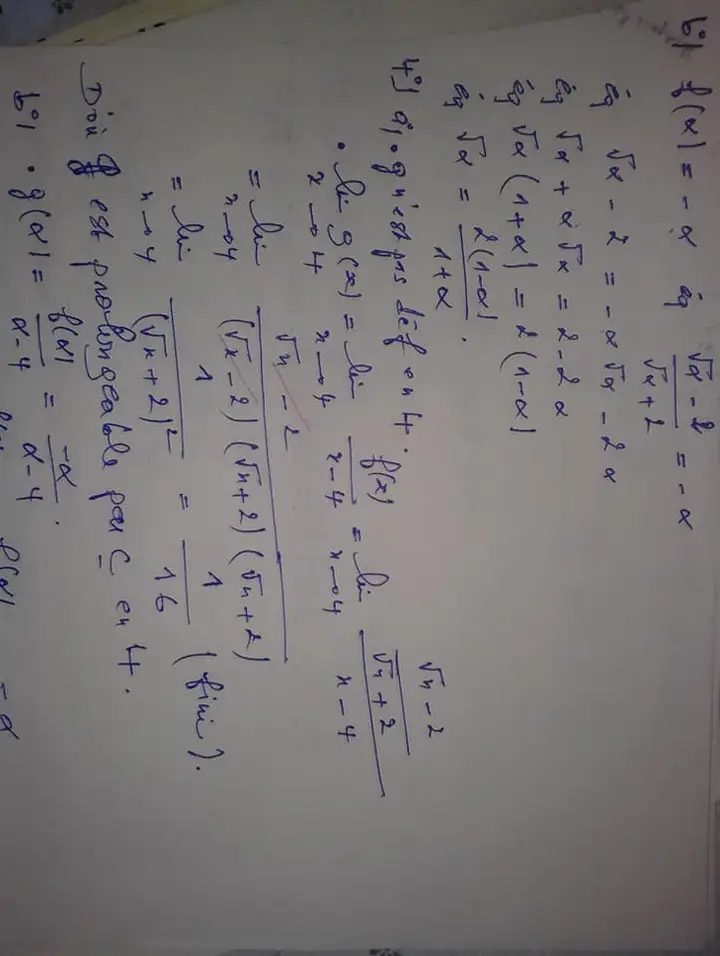 b°) f(α) = -α éq (√α - 2)/(√α + 2) = -α
éq √α - 2 = -α√α - 2α
éq √α + α√α = 2 - 2α
éq √α (1+α) = 2(1-α)
éq √α = 2(1-α)/(1+α) .
4°) a). g n'est pas déf en 4.
• lim x→4 g(x) = lim x→4 f(x)/(x-4) = lim x→4 ((√x - 2)/(√x + 2))/(x - 4)
= lim x→4 (√x - 2)/((√x - 2)(√x + 2)(√x + 2))
= lim x→4 1/(√x + 2)² = 1/16 (fini).
D'où g est prolongeable par C en 4.
b°) • g(α) = f(α)/(α-4) = -α/(α-4) .
f(α) -α